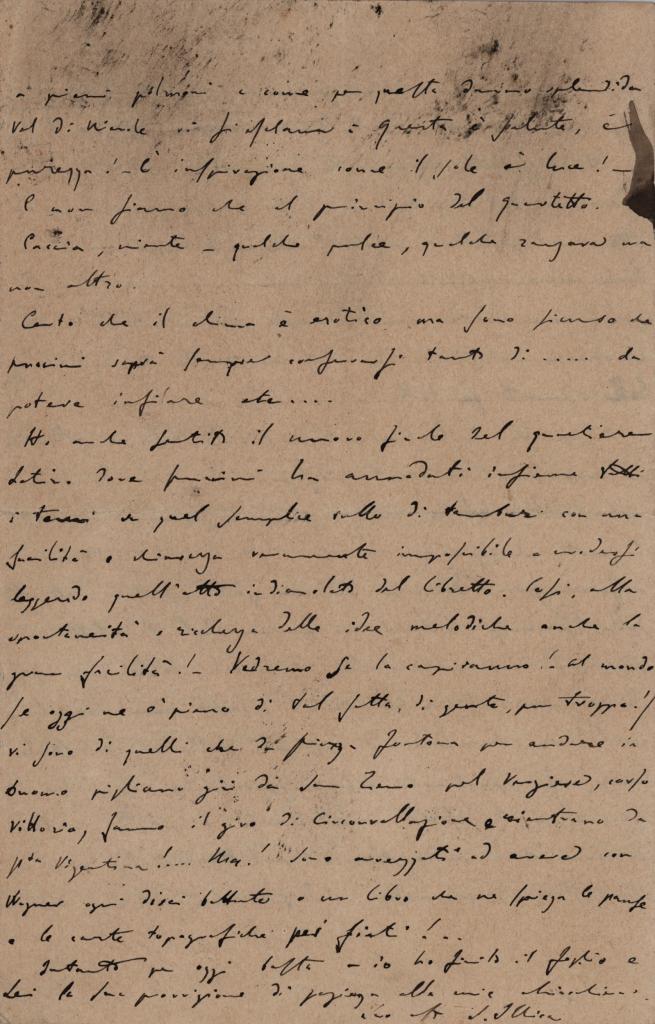 a pieni polmoni e come per questa divina splendida
Val di Nievole si
purezza! È inspirazione come il sole è luce! —
E non siamo che al principio del quartetto.
Caccia, niente — qualche pulce, qualche zanzara ma
non altro.
Certo che il clima è erotico ma sono sicuro che
Puccini saprà sempre conservarsi tanto di ..... da
potere infilare etc....
Ho anche sentito il nuovo finale del quartiere
Latino dove Puccini ha annodati insieme tutti
i temi su quel semplice rullo di tamburi con una
facilità e chiarezza veramente impossibile a credersi
leggendo quell'atto indiavolato del libretto. Così, alla
spontaneità e ricchezza delle idee melodiche anche la
gran facilità! — Vedremo se la capiranno! Al mondo
(e oggi ne è pieno di tal fatta, di gente, pur troppo!)
vi sono di quelli che da piazza Fontana per andare in
Duomo pigliano giù da San Zeno pel Verziere, corso
Vittoria, fanno il giro di Circonvallazione e rientrano da
pta Vigentina!.... Ma! Sono avvezzati ad avere con
Wagner ogni dieci battute o un libro che ne spiega le pause
o le carte topografiche pei siti!..
Intanto per oggi basta — io ho finito il foglio e
Lei la sua provvigione di pazienza alla mia
L. Illica